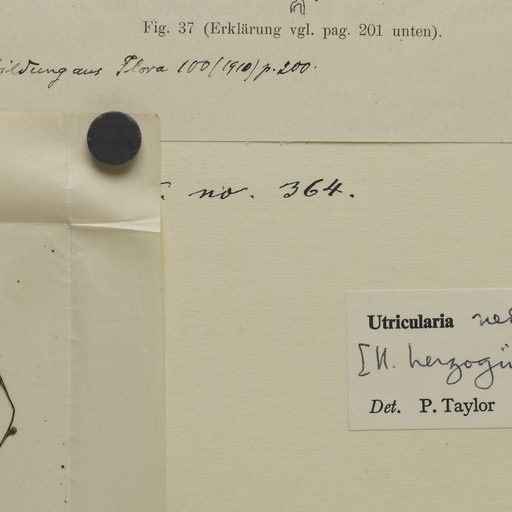 Fig. 37 (Erklärung vgl. pag. 201 unten).
bildung aus Flora 100 (1910) p. 200.
no. 364.
Utricularia
[U. herzogii
Det. P. Taylor